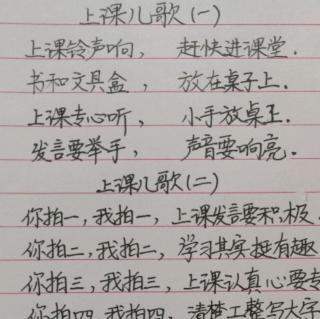 上课儿歌(一)
上课铃声响， 赶快进课堂.
书和文具盒， 放在桌子上.
上课专心听， 小手放桌上.
发言要举手， 声音要响亮.
上课儿歌(二)
你拍一,我拍一,上课发言要积极.
你拍二,我拍二,学习其实挺有趣
你拍三,我拍三,上课认真心要专
你拍四,我拍四,清楚工整写大字